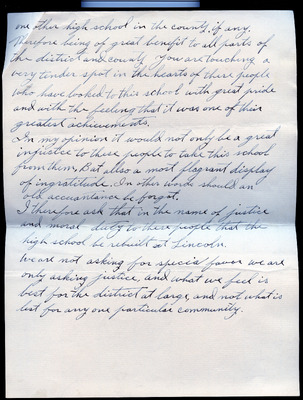 one other high school in the county, if any.
Therefore being of great benefit to all parts of
the district and county. You are touching a
very tender spot in the hearts of these people
who have looked to this school with great pride
and with the feeling that it was one of their
greatest achievements.
In my opinion it would not only be a great
injustice to these people to take this school
from them, But allso a most flagrant display
of ingratitude. In other words should an
old accuantance be forgot.
I therefore ask that in the name of justice
and moral duty to these people that the
high school be rebuilt at Lincoln.
We are not asking for special favor we are
only asking justice, and what we feel is
best for the district at large, and not what is
best for any one particular community.